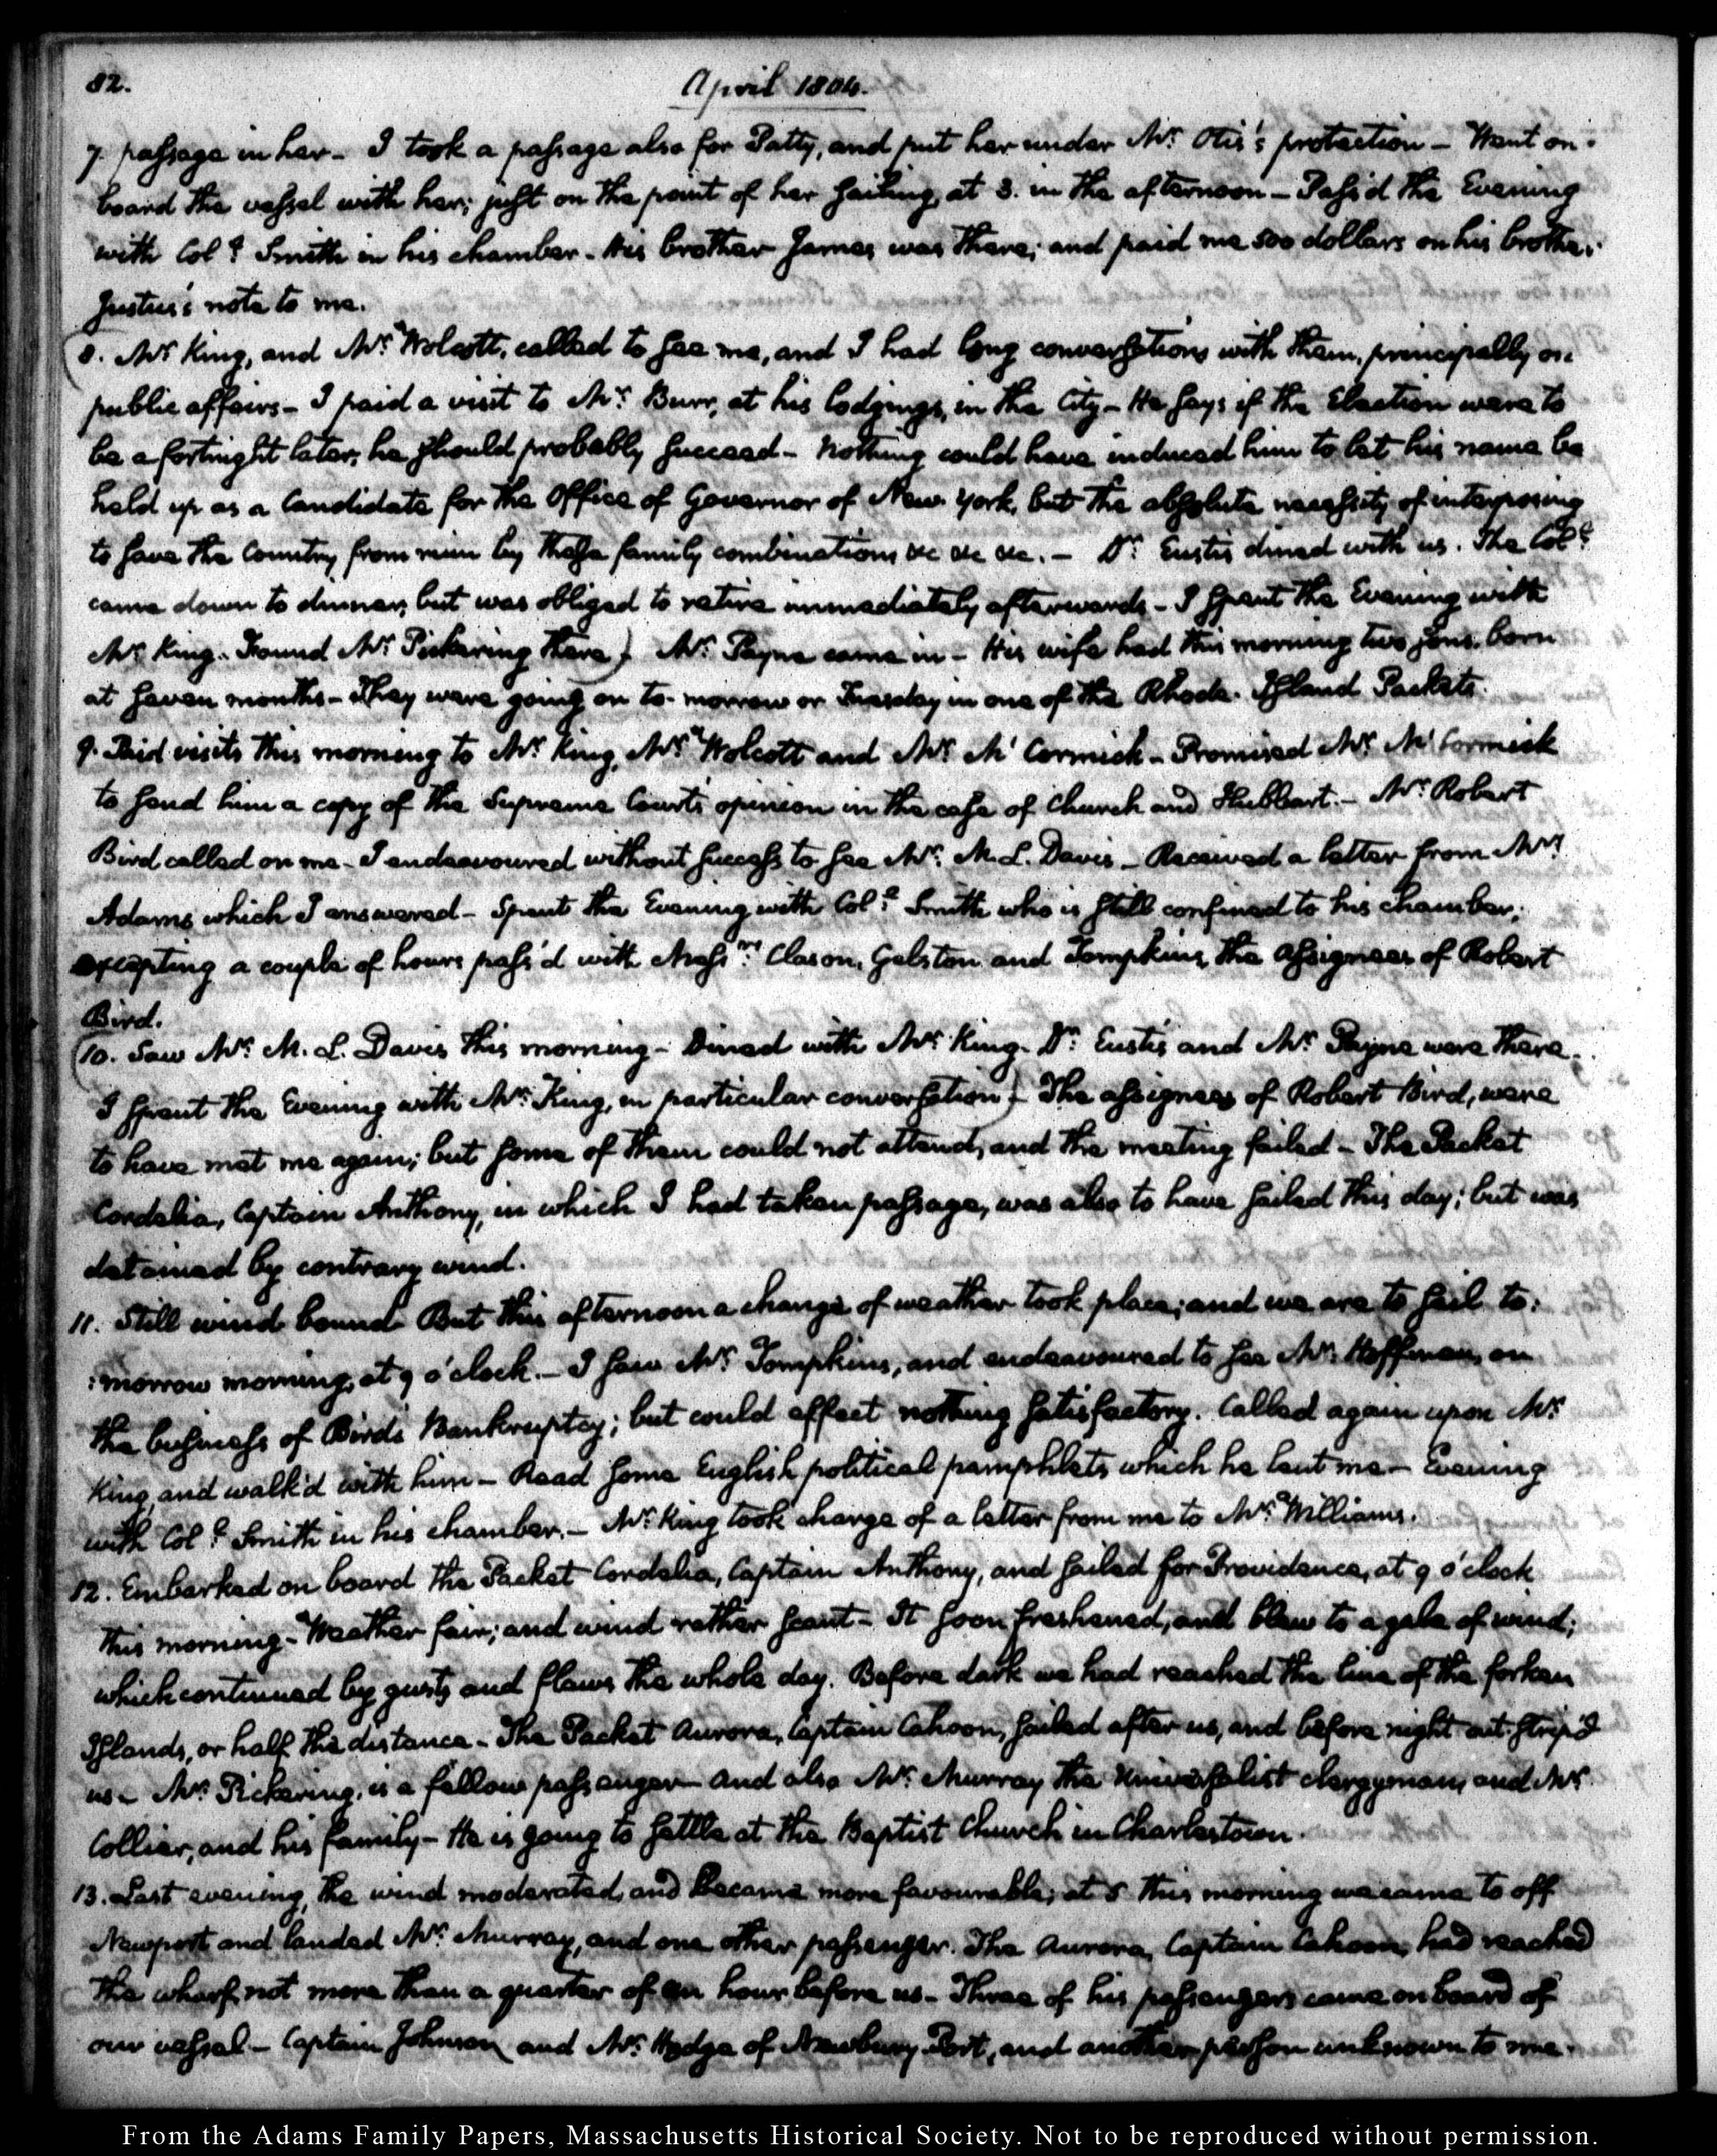 82.
April 1804.
7. passage in her – I took a passage also for Patty, and put her under Mr. Otis's protection – Went on-
board the vessel with her; just on the point of her sailing, at 3. in the afternoon – Pass'd the Evening
with Coll. Smith in his chamber – His brother James was there; and paid me 500 dollars on his brother
Justus's note to me.
(8. Mr. King, and Mr. Wolcott, called to see me, and I had long conversations with them, principally on
public affairs – I paid a visit to Mr. Burr, at his lodgings, in the City – He says if the Election were to
be a fortnight later, he should probably succeed – Nothing could have induced him to let his name be
held up as a Candidate for the Office of Governor of New-York, but the absolute necessity of interposing
to save the Country from ruin by these family combinations &c &c &c. – Dr. Eustis dined with us. The Coll.
came down to dinner, but was obliged to retire immediately afterwards – I spent the Evening with
Mr. King. Found Mr. Pickering there) Mr. Payne came in – His wife had this morning two sons, born
at seven months – They were going on to-morrow or Tuesday in one of the Rhode-Island Packets.
9. Paid visits this morning to Mr. King, Mr. Wolcott and Mr. Mc'Cormick – Promised Mr. Mc'Cormick
to send him a copy of the Supreme Court's opinion in the case of Church and Hubbart. – Mr. Robert
Bird called on me – I endeavoured without success to see Mr. M. L. Davis – Received a letter from Mrs.
Adams which I answered – Spent the Evening with Coll. Smith who is still confined to his chamber;
excepting a couple of hours pass'd with Messrs. Clason, Gelston and Tompkins, the assignees of Robert
Bird.
(10. Saw Mr. M. L. Davis this morning – Dined with Mr. King. Dr. Eustis and Mr. Payne were there.
I spent the Evening with Mr. King, in particular conversation) The assignees of Robert Bird, were
to have met me again; but some of them could not attend, and the meeting failed – The Packet
Cordelia, Captain Anthony, in which I had taken passage, was also to have sailed this day; but was
detained by contrary wind.
11. Still wind bound. But this afternoon a change of weather took place; and we are to sail to-
:morrow morning, at 9 o'clock. – I saw Mr. Tompkins, and endeavoured to see Mr. Hoffman, on
the business of Bird's Bankruptcy; but could effect nothing satisfactory. Called again upon Mr.
King, and walk'd with him – Read some English political pamphlets which he lent me – Evening
with Coll. Smith in his chamber. – Mr. King took charge of a letter from me to Mr. Williams.
12. Embarked on board the Packet Cordelia, Captain Anthony, and sailed for Providence, at 9 o'clock
this morning – Weather fair; and wind rather scant – It soon freshened, and blew to a gale of wind;
which continued by gusts and flaws the whole day. Before dark we had reached the line of the forken
Islands, or half the distance – The Packet Aurora, Captain Cahoon, sailed after us, and before night out-strip'd
us – Mr. Pickering, is a fellow passenger – and also Mr. Murray the Universalist clergyman, and Mr.
Collier, and his family – He is going to settle at the Baptist Church in Charlestown.
13. Last evening, the wind moderated, and became more favourable; at 5 this morning we came to off
Newport and landed Mr. Murray, and one other passenger. The Aurora, Captain Cahoon, had reached
the wharf, not more than a quarter of an hour before us – Three of his passengers came on board of
our vessel – Captain Johnson and Mr. Hodge of Newbury-Port, and another person unknown to me.
From the Adams Family Papers, Massachusetts Historical Society. Not to be reproduced without permission.